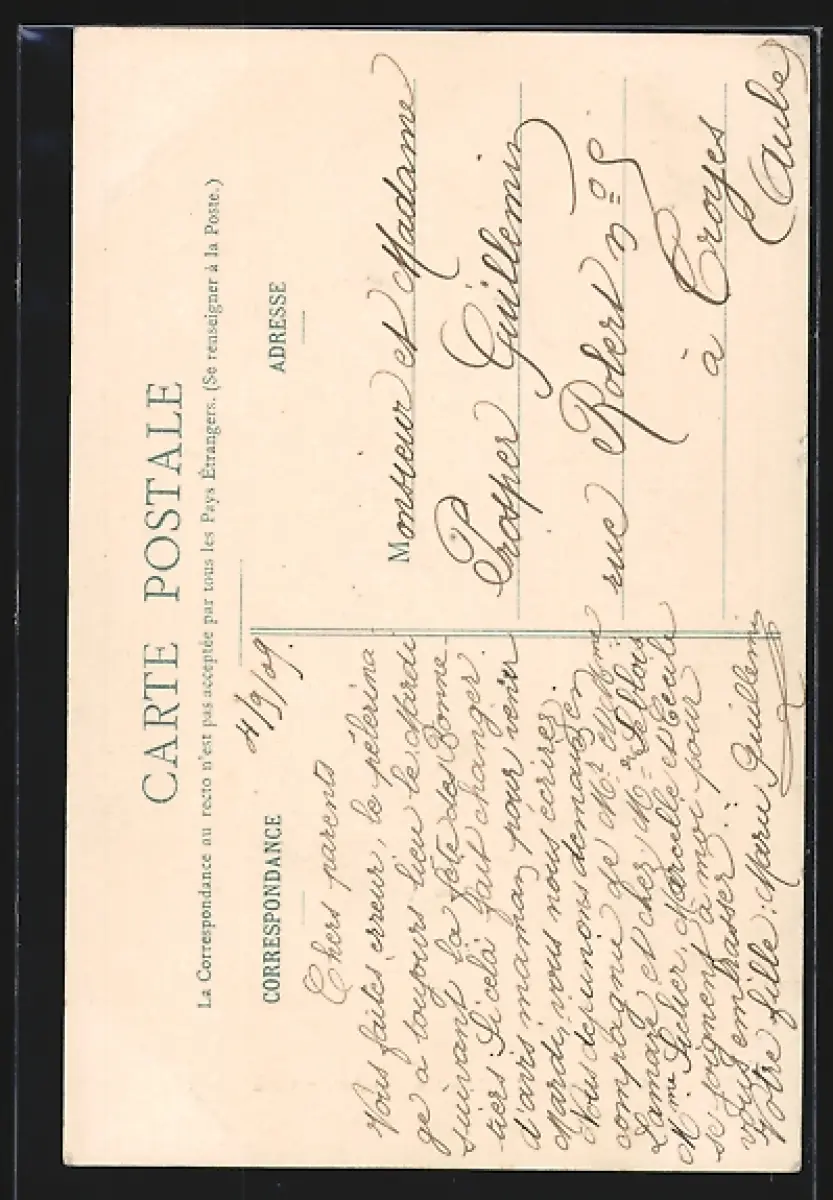 CARTE POSTALE
La Correspondance au recto n'est pas acceptée par tous les Pays Étrangers. (Se renseigner à la Poste.)
CORRESPONDANCE
4/9/09.
Chers parents
Vous faites erreur, le pèlerina-
ge a toujours lieu le Mardi
suivant la fête des Bonne-
tiers. Si celà fait changer
d'avis maman pour venir
Mardi, vous nous écrirez.
Nous déjeunions demain en
compagnie de Mr et Mme
Lamaze et chez Mr Leblois
Mme Lecher, Marcelle et Cécile
se joignent à moi pour
vous embrasser.
Votre fille: Marie Guillemin
ADRESSE
Monsieur et Madame
Prosper Guillemin
rue Robert no 5
à Troyes
(Aube)